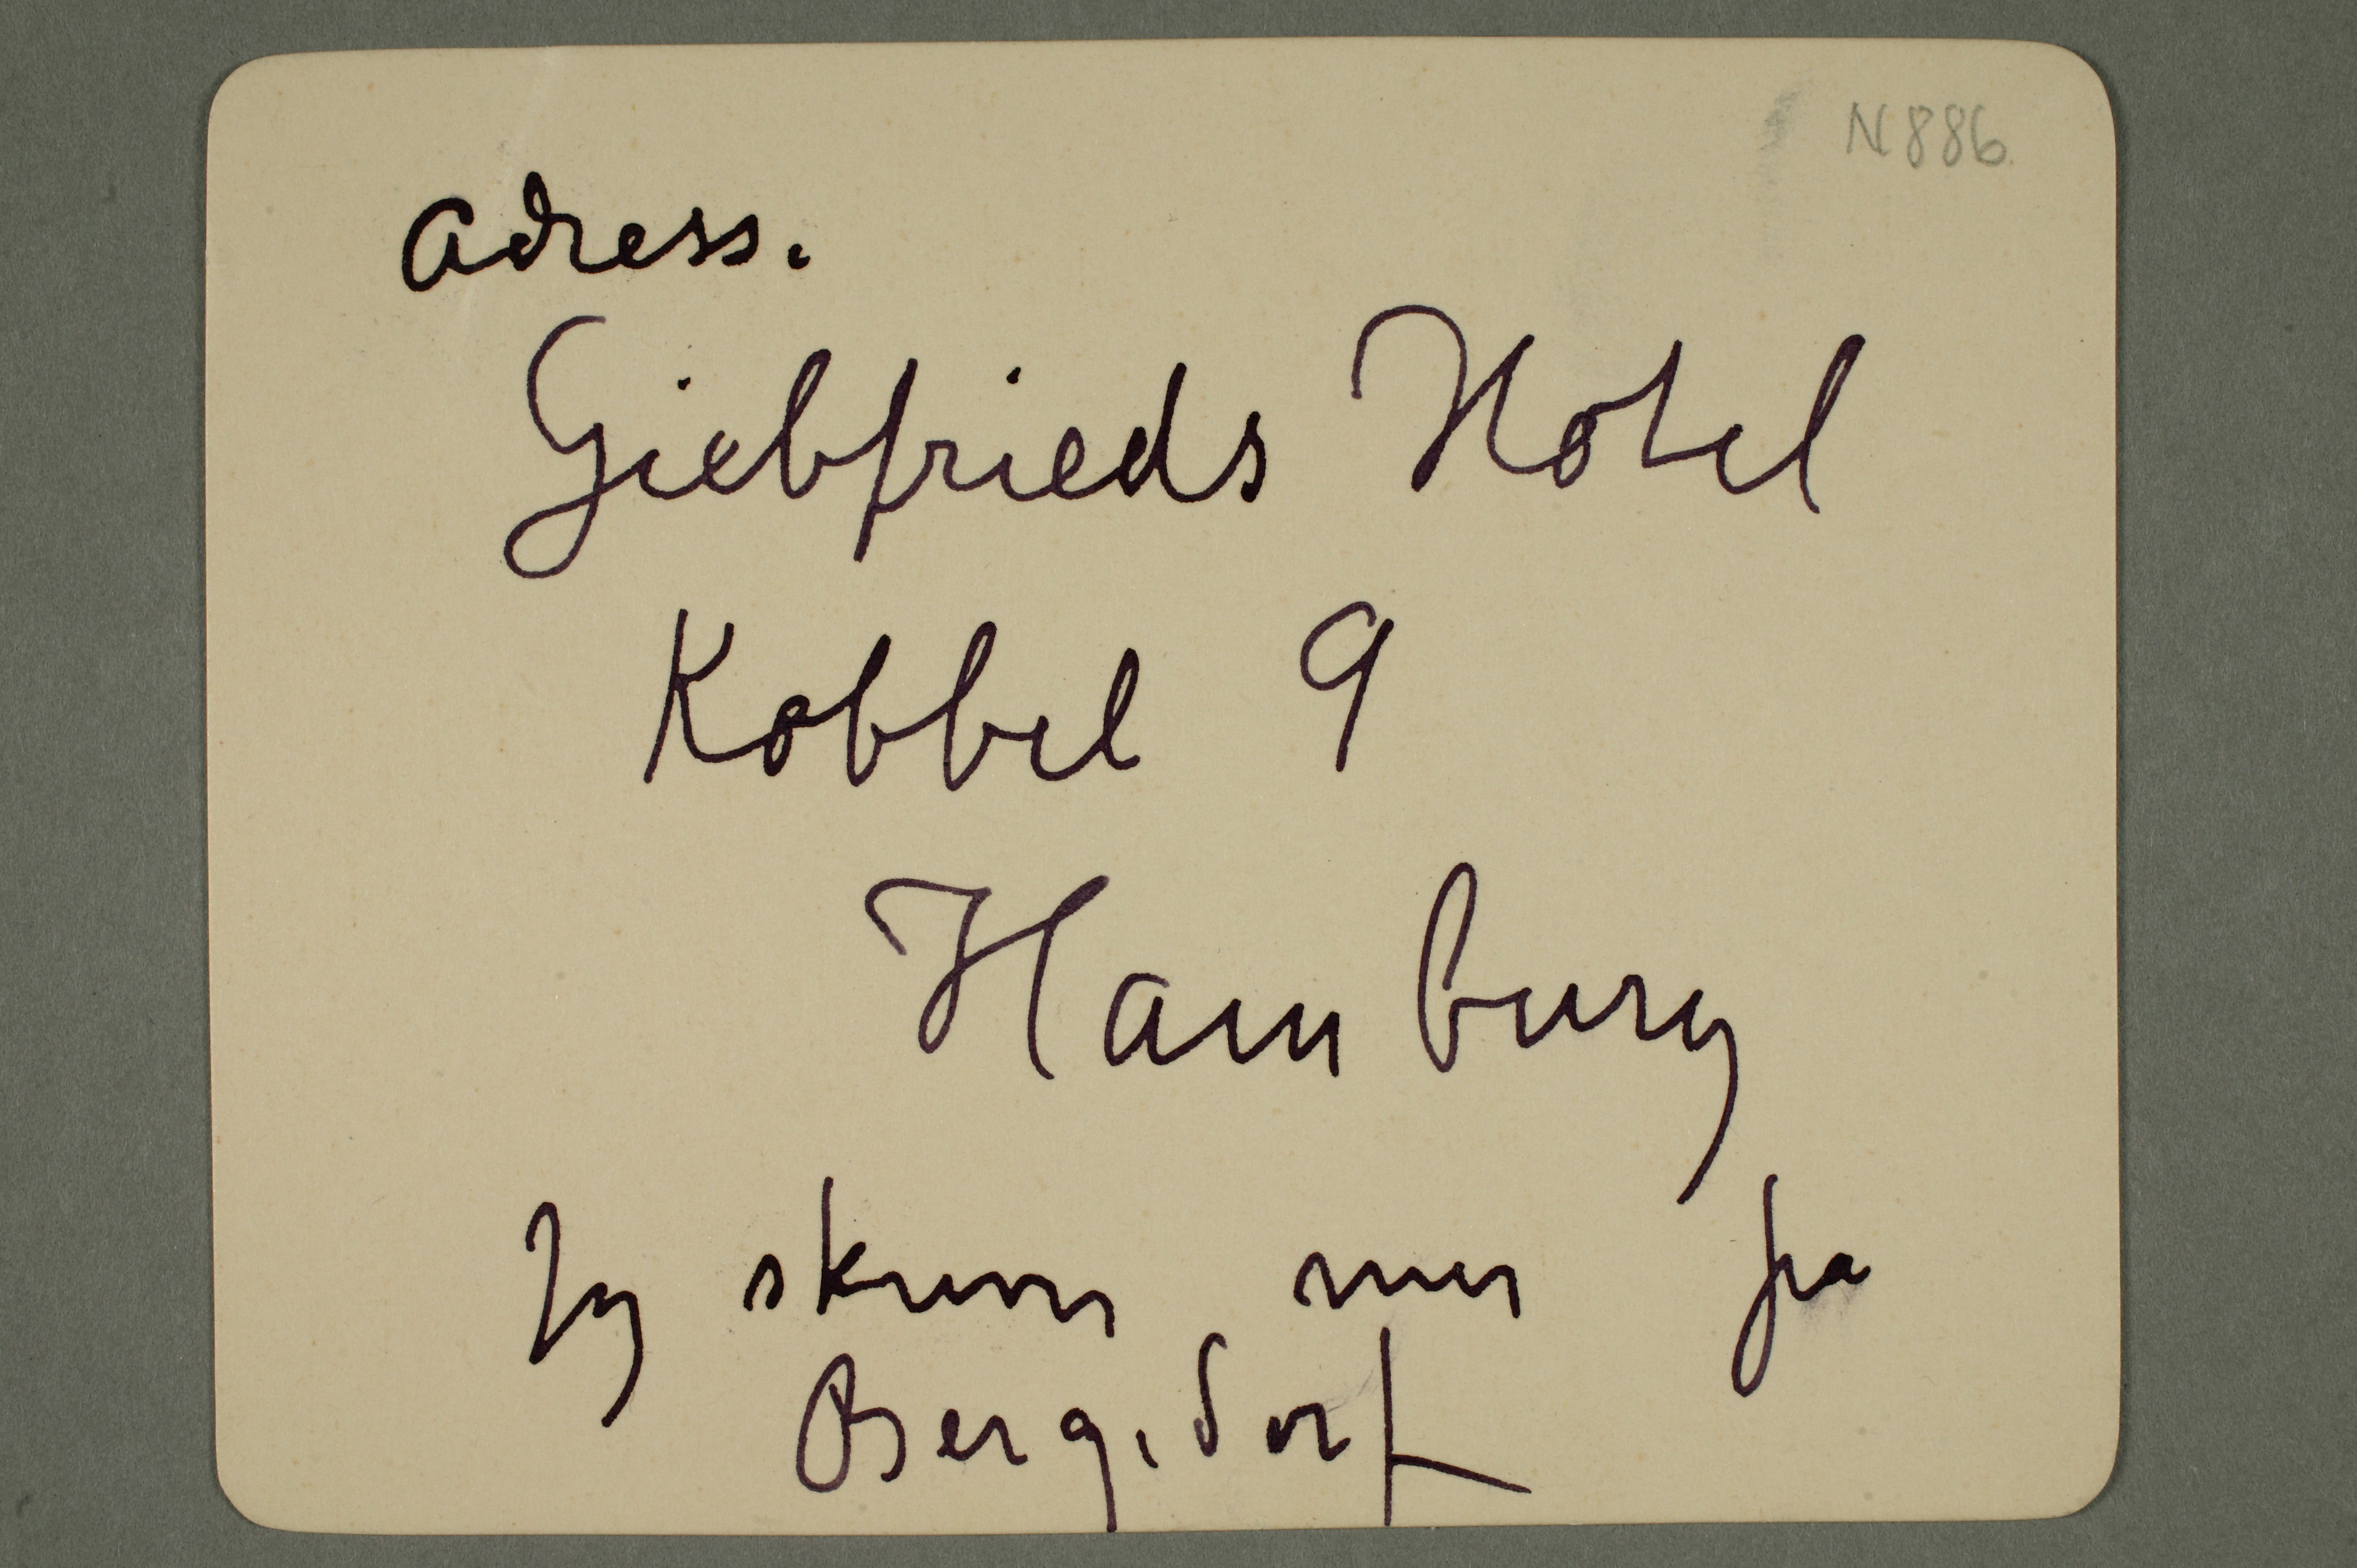 N 886
Adress.
Giebfrieds Hotel
Kobbel 9
Hamburg
Jeg skriver mer fra
Bergedorf